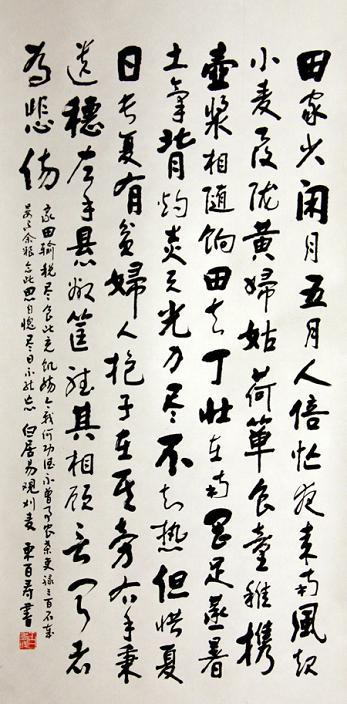 田家少闲月五月人倍忙夜来南風起
小麦覆陇黄婦姑荷箪食童稚携
壶漿相随饷田去丁壮在南冈足蒸暑
土氣背灼炎天光力尽不知热但惜夏
日长复有贫婦人抱子在其旁右手秉
遗穗左手悬敝筐听其相顾言闻者
为悲伤
家田输税尽食此充饥肠今我何功德不曾事农桑吏禄三百石岁
晏有余粮念此思自愧尽日不能忘 白居易观刈麦 東百寿書